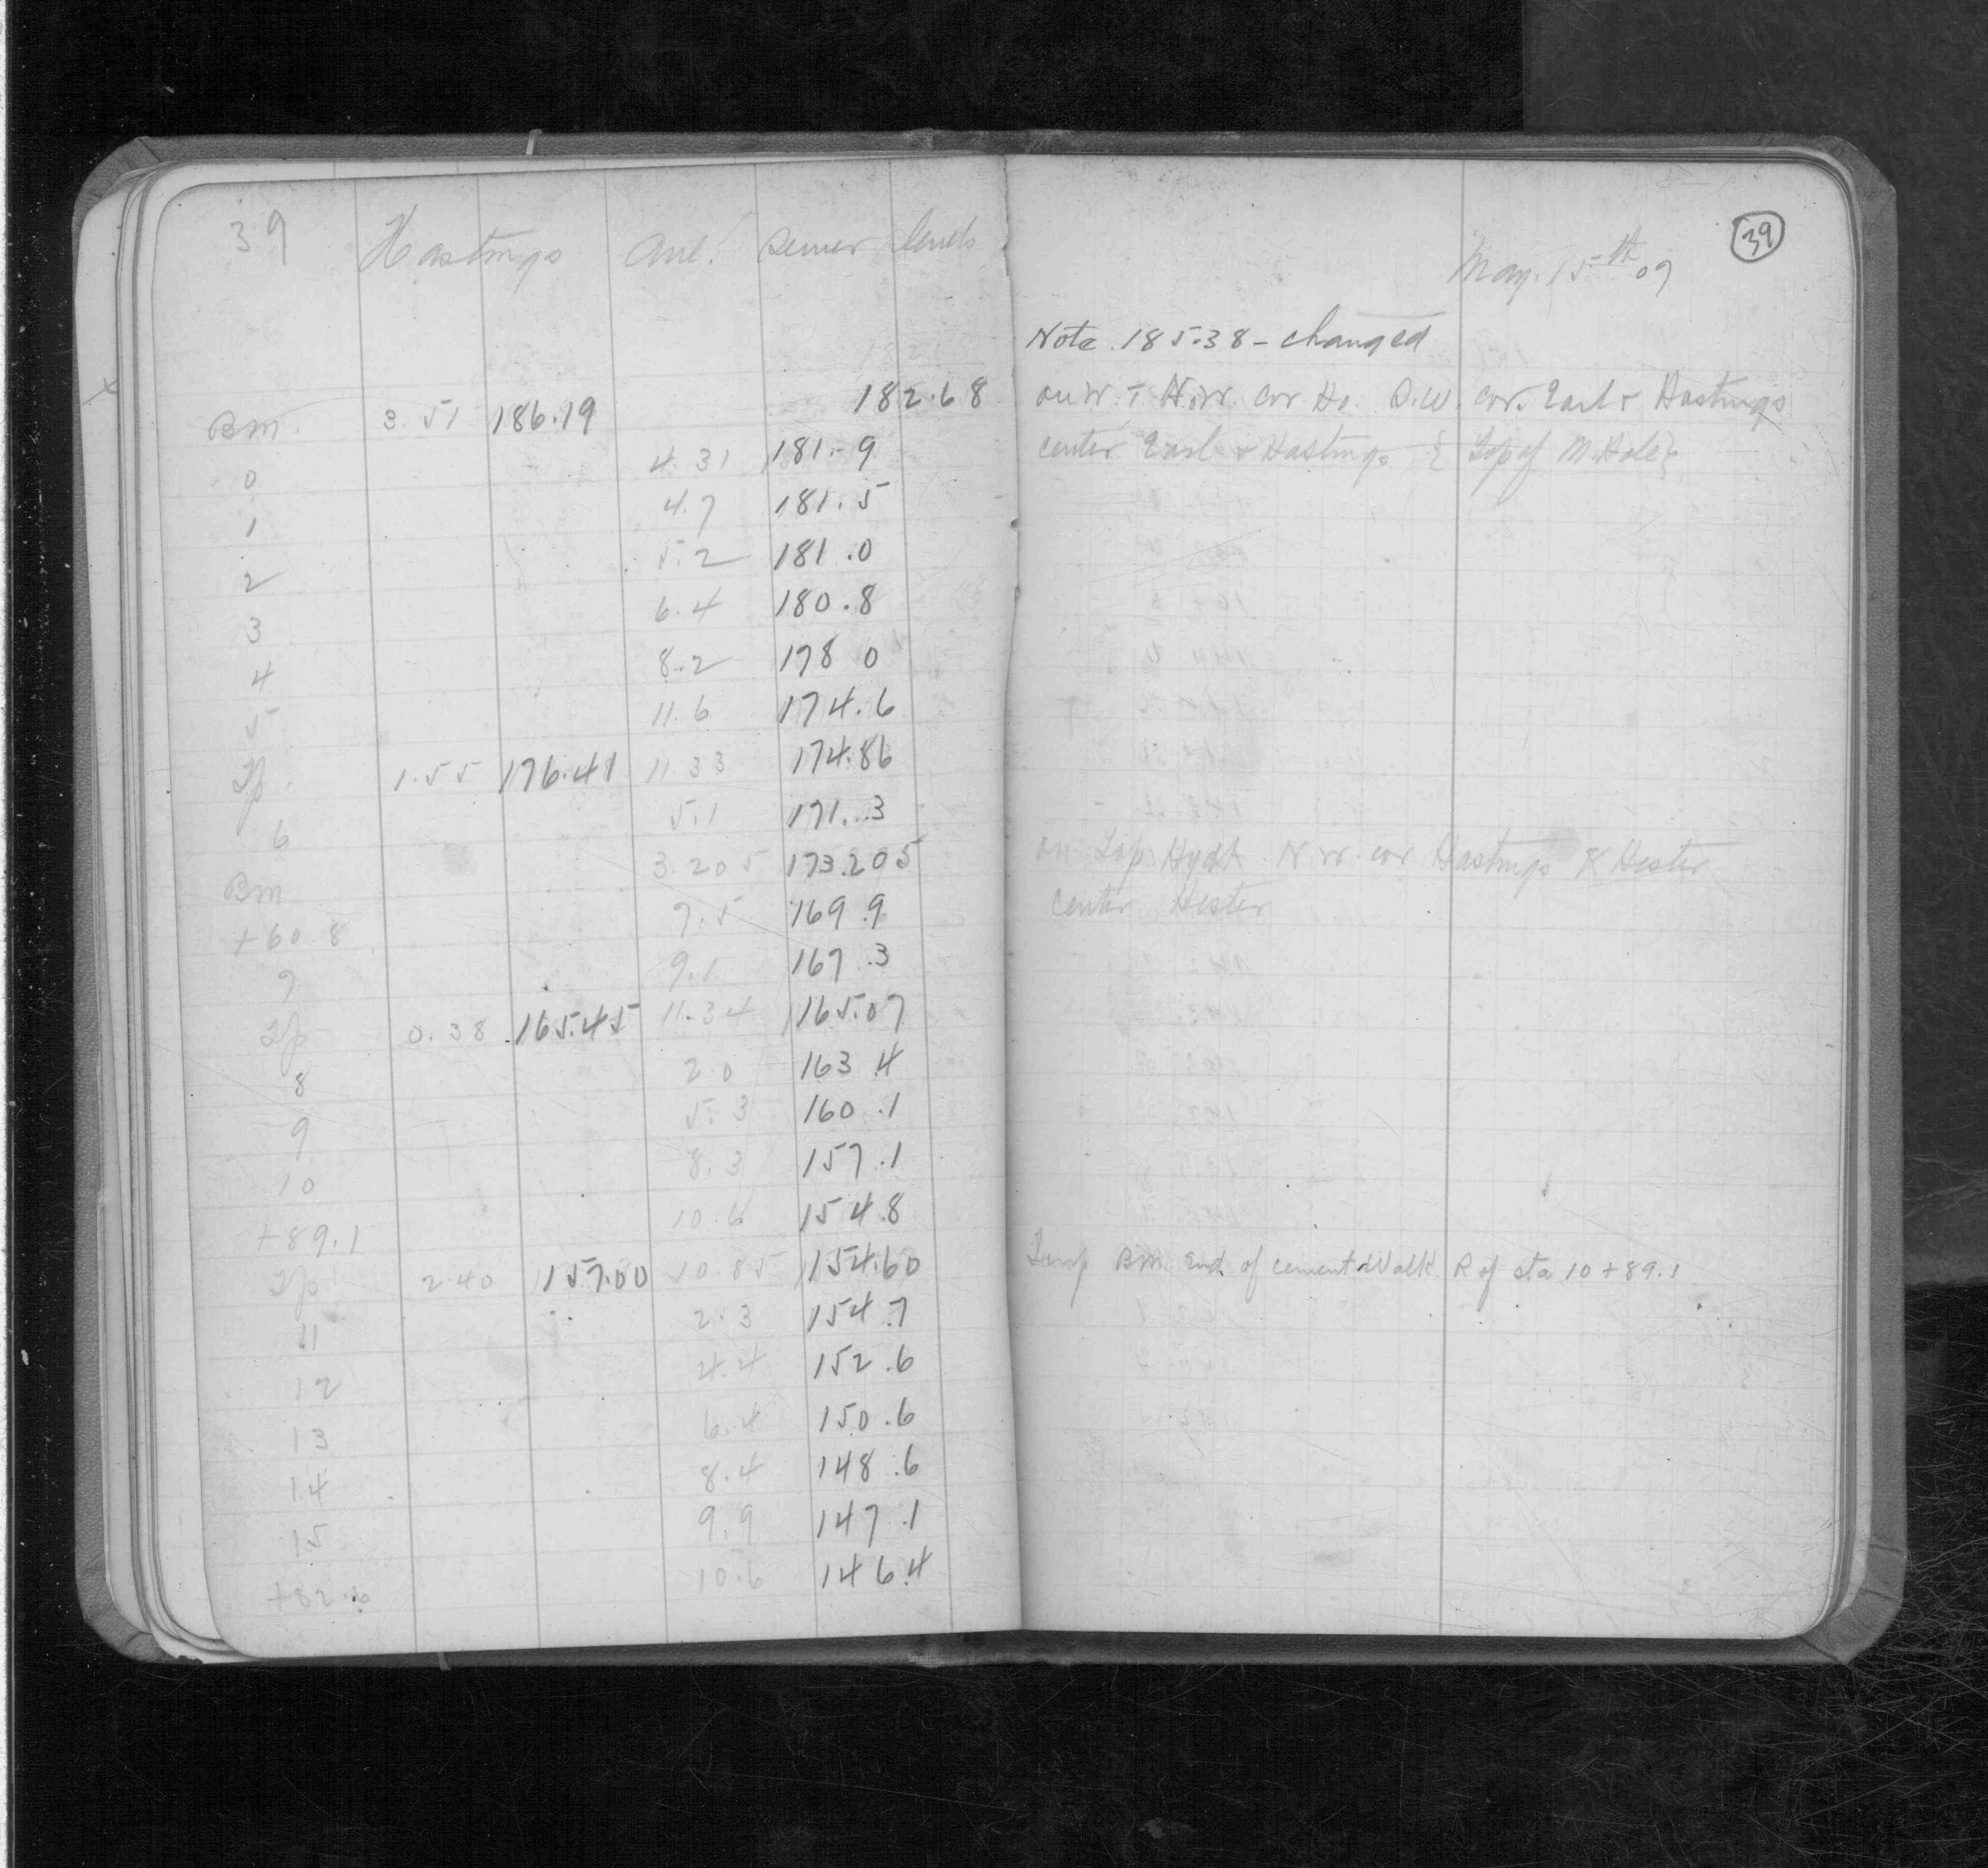 39 Hastings Ave. Sewer levels
May. 15th 09
39
Note. 185.38 - changed
Bm. 3.51 186.19 182.68 on W. T N.W. cor Ho. S.W. cor. Earl & Hastings
0 4.31 181.9 center Earl & Hastings { Top of M. Hole }
1 4.7 181.5
2 5.2 181.0
3 6.4 180.8
4 8.2 178 0
5 11.6 174.6
Tp. 1.55 176.41 11.33 174.86
6 5.1 171.3
Bm 3.205 173.205 on Top Hydt N.W. cor Hastings & Hester
+60.8 7.5 169.9 center Hester
7 9.1 167.3
Tp 0.38 165.45 11.34 165.07
8 2.0 163 4
9 5.3 160.1
10 8.3 157.1
+89.1 10.6 154.8
Tp 2.40 157.00 10.85 154.60 Temp Bm End of cement Walk R of sta 10+89.1
11 2.3 154.7
12 4.4 152.6
13 6.4 150.6
14 8.4 148.6
15 9.9 147.1
+82.6 10.6 146.4